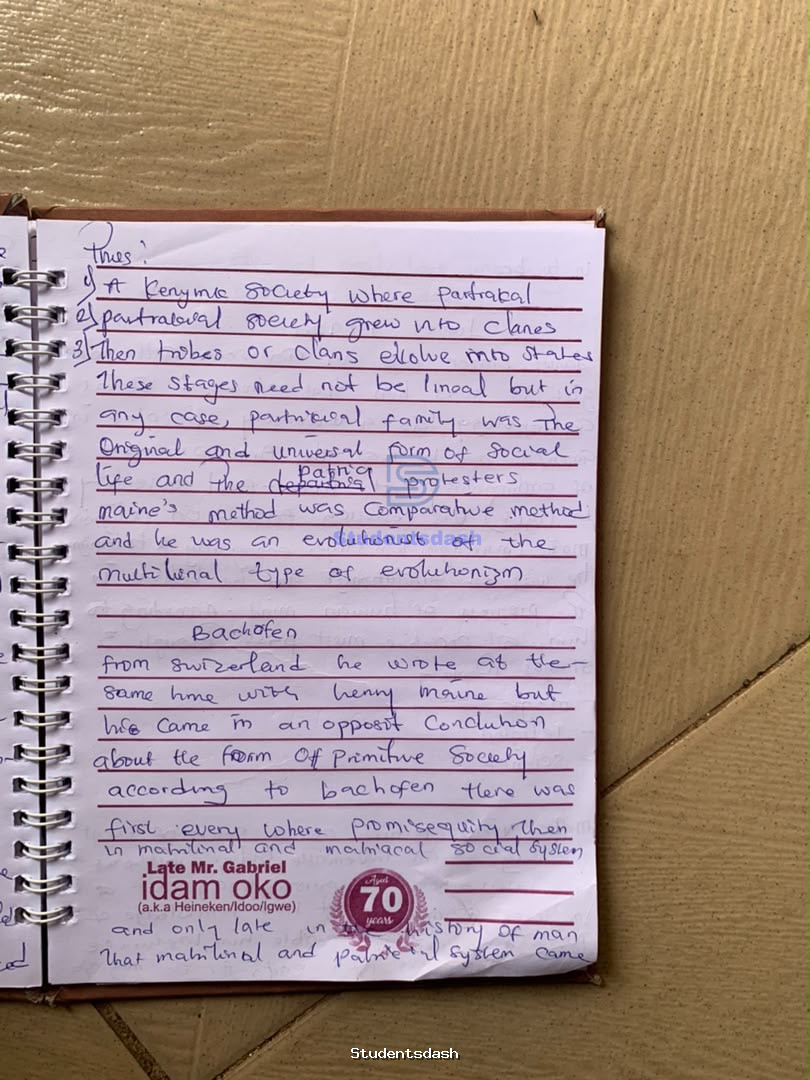 Thus:
1) A Kenymic society where partrakal
2) partralawal society grew into clanes
3) Then tribes or clans evolve into states
These stages need not be lineal but in
any case, partriceal family was The
Original and universal form of social
patria
life and the departrial protesters
maine's method was Comparative method
and he was an evolutionist of the
multilenal type of evolutionizm
Bachofen
from swizerland he wrote at the
same time with henny maine but
his came in an opposit Concluhon
about the form Of Primitive Society
according to bachofen there was
first every where promisequity then
in matrilinal and matriacal social system
Late Mr. Gabriel
idam oko
(a.k.a Heineken/Idoo/Igwe)
Aged
70
years
and only late in the history of man
That matrilinal and patrie al system came
Studentsdash
Studentsdash